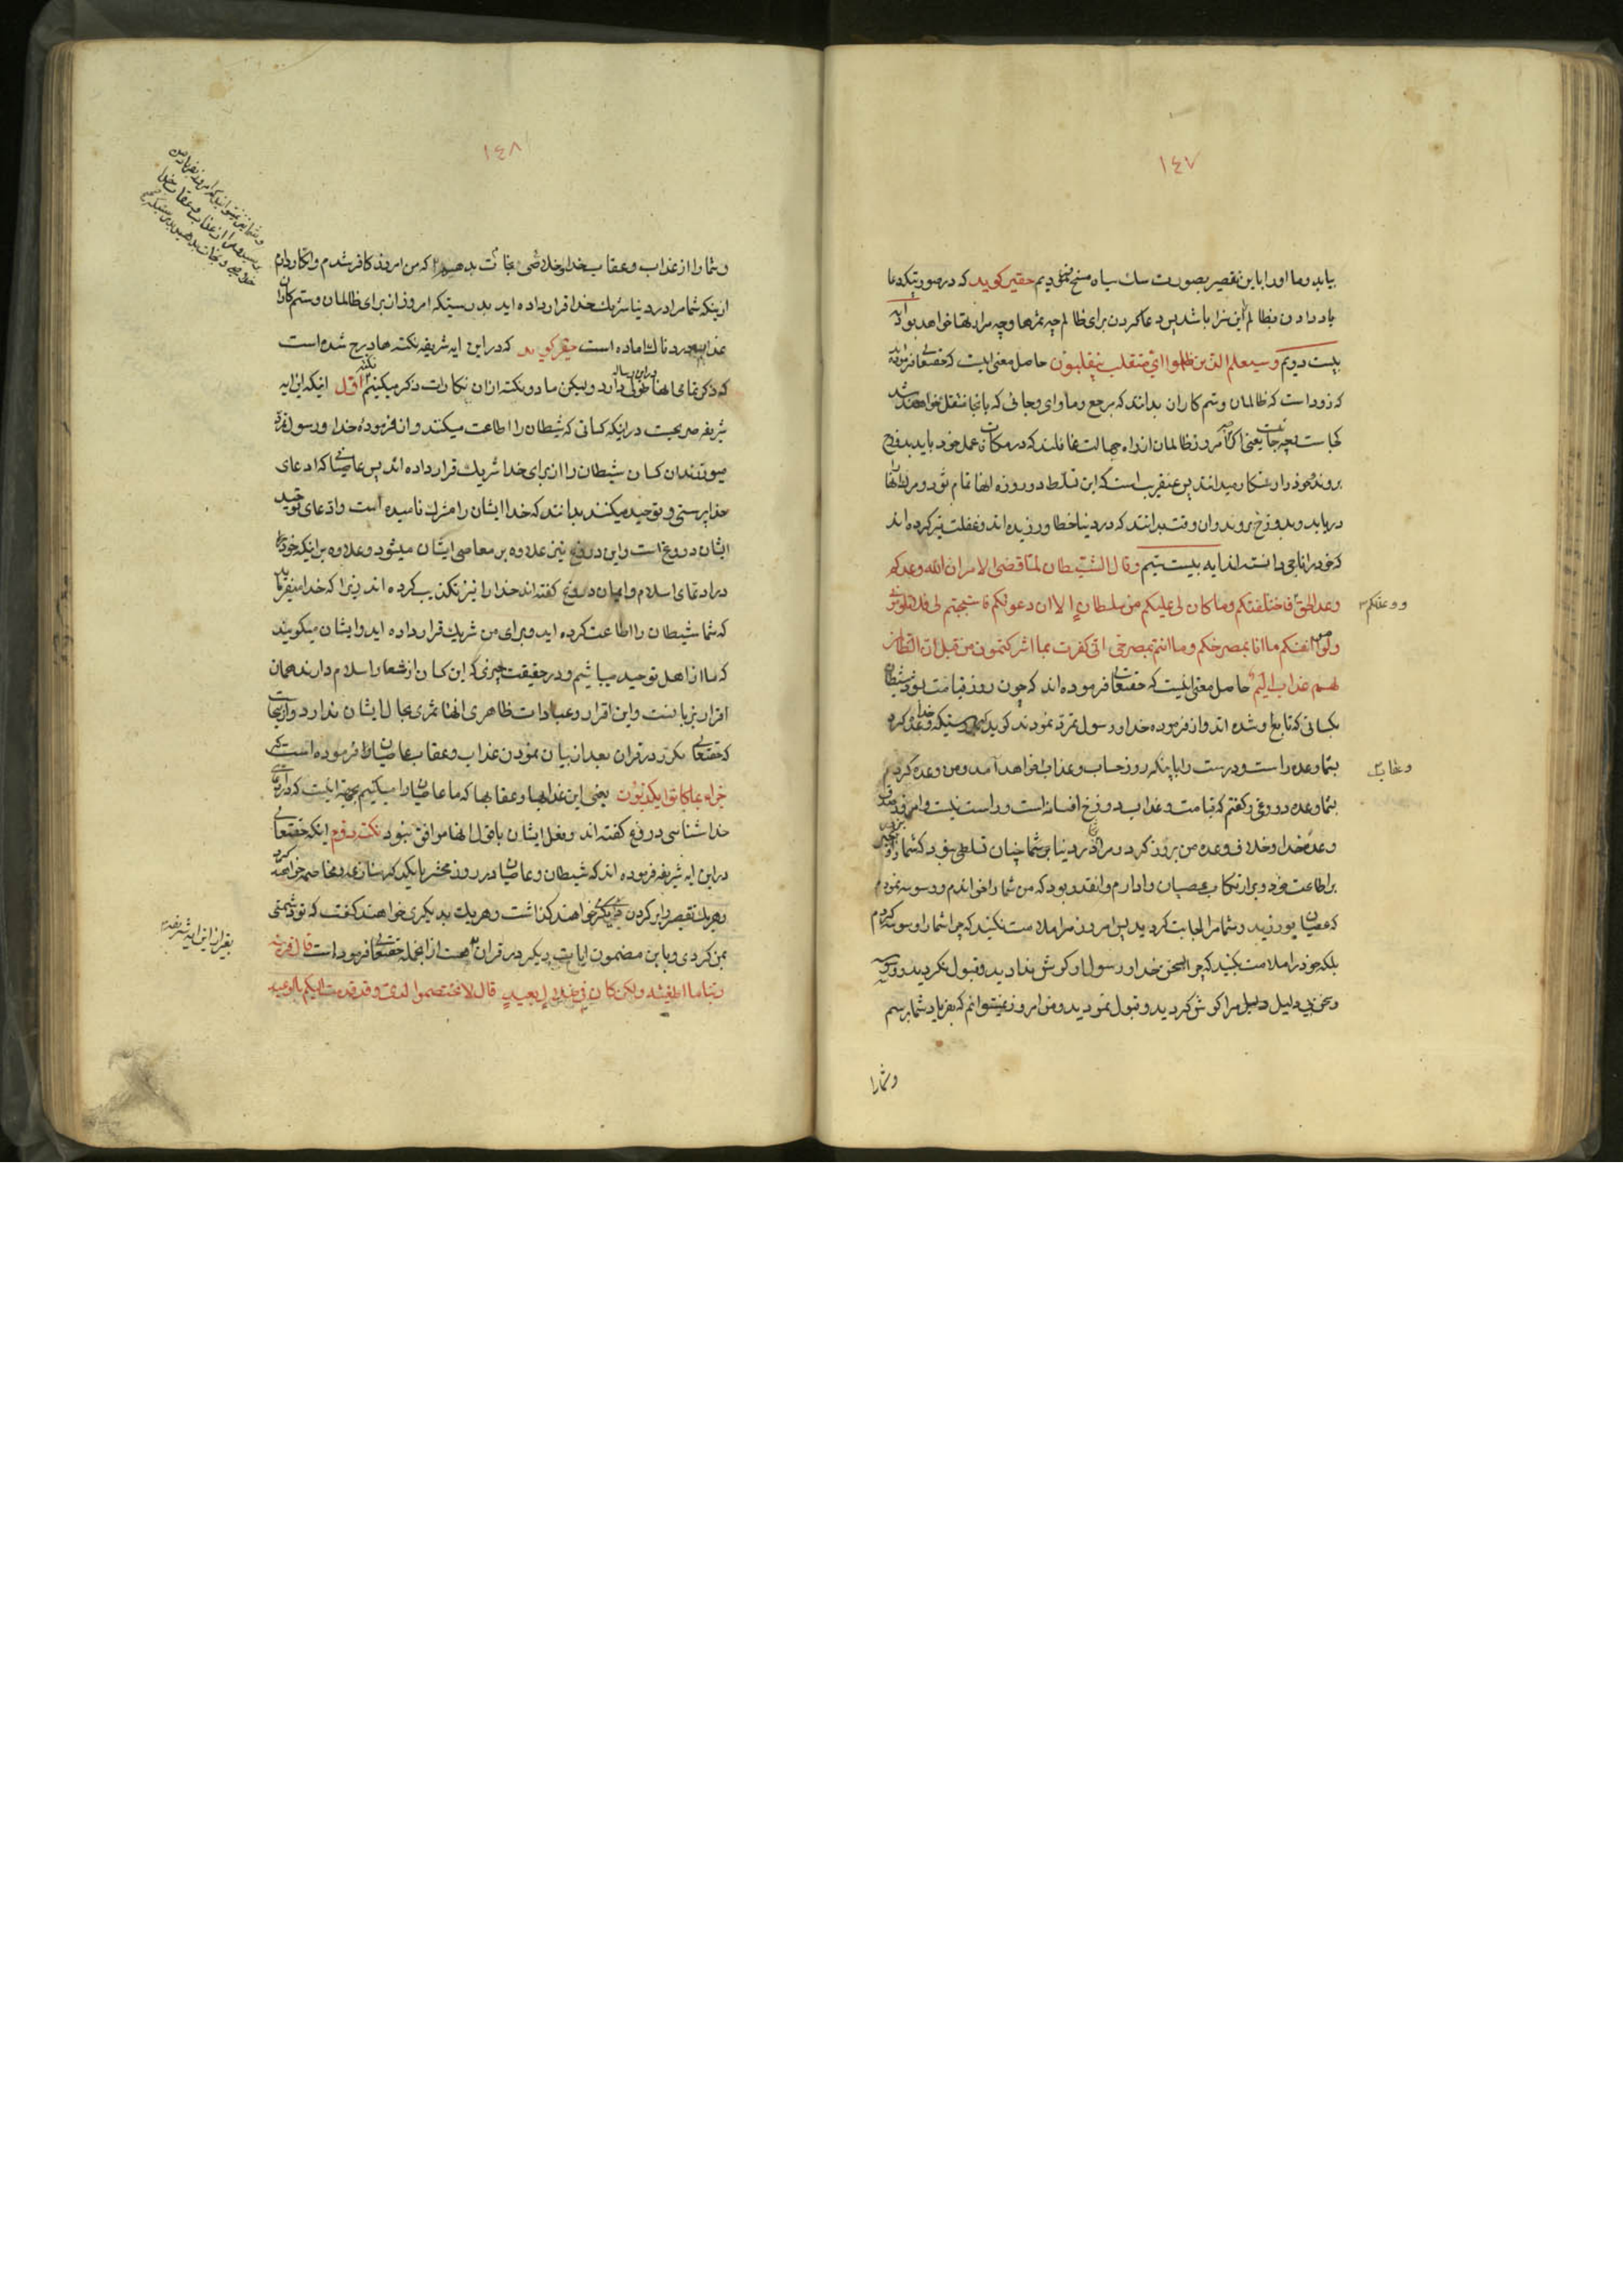 ١٤٧
بیاید و ما او را باین تقصیر بصورت سك سیاه مسخ نمودیم حقیر کوید که در صورتیکه دعا
یاد دادن بظالم این سزا باشد پس دعا کردن برای ظالم چه ثمرها و چه سزاها خواهد بود آیه
بیست دویم و سیعلم الذین ظلموا ای منقلب ینقلبون حاصل معنی اینست که حقتعالی فرموده
که زود است که ظالمان و ستم کاران بدانند که مرجع و ماوای و جائی که بانجا منتقل خواهند شد
کجاست و چه جاست یعنی اکر امروز ظالمان از راه جهالت غافلند که در مکافات عمل خود باید بدوزخ
بروند و خود را رستکار میدانند پس عنقریب است که این تسلط دو روزه انها تمام شود و مرك انها
دریابد و بدوزخ بروند و ان وقت بدانند که در دنیا خطا ورزیده اند و غفلت نیز کرده اند
که خود را ناجی دانسته اند ایه بیست سیم و قال الشیطان لما قضی الامر ان الله وعدکم
وعد الحق فاخلفتکم و ما کان لی علیکم من سلطان الا ان دعوتکم فاستجبتم لی فلا تلومونی
و وعدتکم
ولوموا انفسکم ما انا بمصرخکم و ما انتم بمصرخی انی کفرت بما اشرکتمون من قبل ان الظالمین
لهم عذاب الیم حاصل معنی اینست که حقتعالی فرموده اند که چون روز قیامت بود شیطان
بکسانی که تابع او شده اند و از فرموده خدا و رسول تمرد نمودند کوید که بدرستیکه خدا وعده کرد
بشما وعده راست و درست را باینکه روز حساب و عذاب خواهد آمد و من وعده کردم
بشما وعده دروغی و کفتم که قیامت و عذاب دوزخ افسانه است و راست نیست و امروز صدق
وعده خدا و خلاف وعده من بروز کرد و مرا در دنیا بر شما چنان تسلطی نبود که شما را بزور
بر اطاعت خود و بر ارتکاب عصیان وادارم و انقدر بود که من شما را خواندم و وسوسه نمودم
که عصیان بورزید و شما مرا اجابت کردید پس امروز مرا ملامت نکنید که چرا شما را وسوسه کردم
بلکه خود را ملامت بکنید که چرا بسخن خدا و رسول او کوش ندادید و قبول نکردید و وسوسه
و سخن بی دلیل مرا کوش کردید و قبول نمودید و من امروز نمیتوانم که بفریاد شما برسم
و شما را
١٤٨
و شما را از عذاب و عقاب خدا خلاصی و نجات بدهم که من امروز کافر شدم و انکار دارم
از اینکه شما مرا در دنیا شریك خدا قرار داده اید بدرستیکه امروز از برای ظالمان و ستم کاران
عذاب دردناك اماده است حقیر کوید که در این ایه شریفه نکته ها درج شده است
که ذکر تمامی انها در این رساله طولی دارد ولیکن ما دو نکته از ان نکات ذکر میکنیم نکته اول اینکه این ایه
شریفه صریحست در اینکه کسانی که شیطان را اطاعت میکنند و از فرموده خدا و رسول تمرد
میورزند ان کسان شیطان را از برای خدا شریك قرار داده اند پس عاصیانی که ادعای
خدا پرستی و توحید میکنند بدانند که خدا ایشان را مشرك نامیده است و ادعای توحید
ایشان دروغ است و این دروغ نیز علاوه بر معاصی ایشان میشود و علاوه بر اینکه خود
در ادعای اسلام و ایمان دروغ کفته اند خدا را نیز تکذیب کرده اند زیرا که خدا میفرماید
که شما شیطان را اطاعت کرده اید و برای من شریك قرار داده اید و ایشان میکویند
که ما از اهل توحید میباشیم و در حقیقت چیزی که این کسان از شعار اسلام دارند همان
اقرار بزبانست و این اقرار و عبادات ظاهری انها ثمری بحال ایشان ندارد و از اینجاست
که حقتعالی مکرر در قران بعد از بیان نمودن عذاب و عقاب عاصیان فرموده است که
جزاء بما کانوا یکذبون یعنی این عذابها و عقابها که ما عاصیان را میکنیم بجهة اینست که در ادعای
خدا شناسی دروغ کفته اند و فعل ایشان با قول انها موافق نبود نکته دوم اینکه حقتعالی
در این ایه شریفه فرموده اند که شیطان و عاصیان در روز محشر با یکدیکر منازعه و مخاصمه خواهند کرد
و هریك تقصیر را بر کردن دیکری خواهند کذاشت و هریك بدیکری خواهند کفت که تو دشمنی
بمن کردی و باین مضمون ایات دیکر در قران هست از انجمله حقتعالی فرموده است قال قرینه
بغیر از این ایه شریفه
ربنا ما اطغیته ولکن کان فی ضلال بعید قال لا تختصموا لدی و قد قدمت الیکم بالوعید